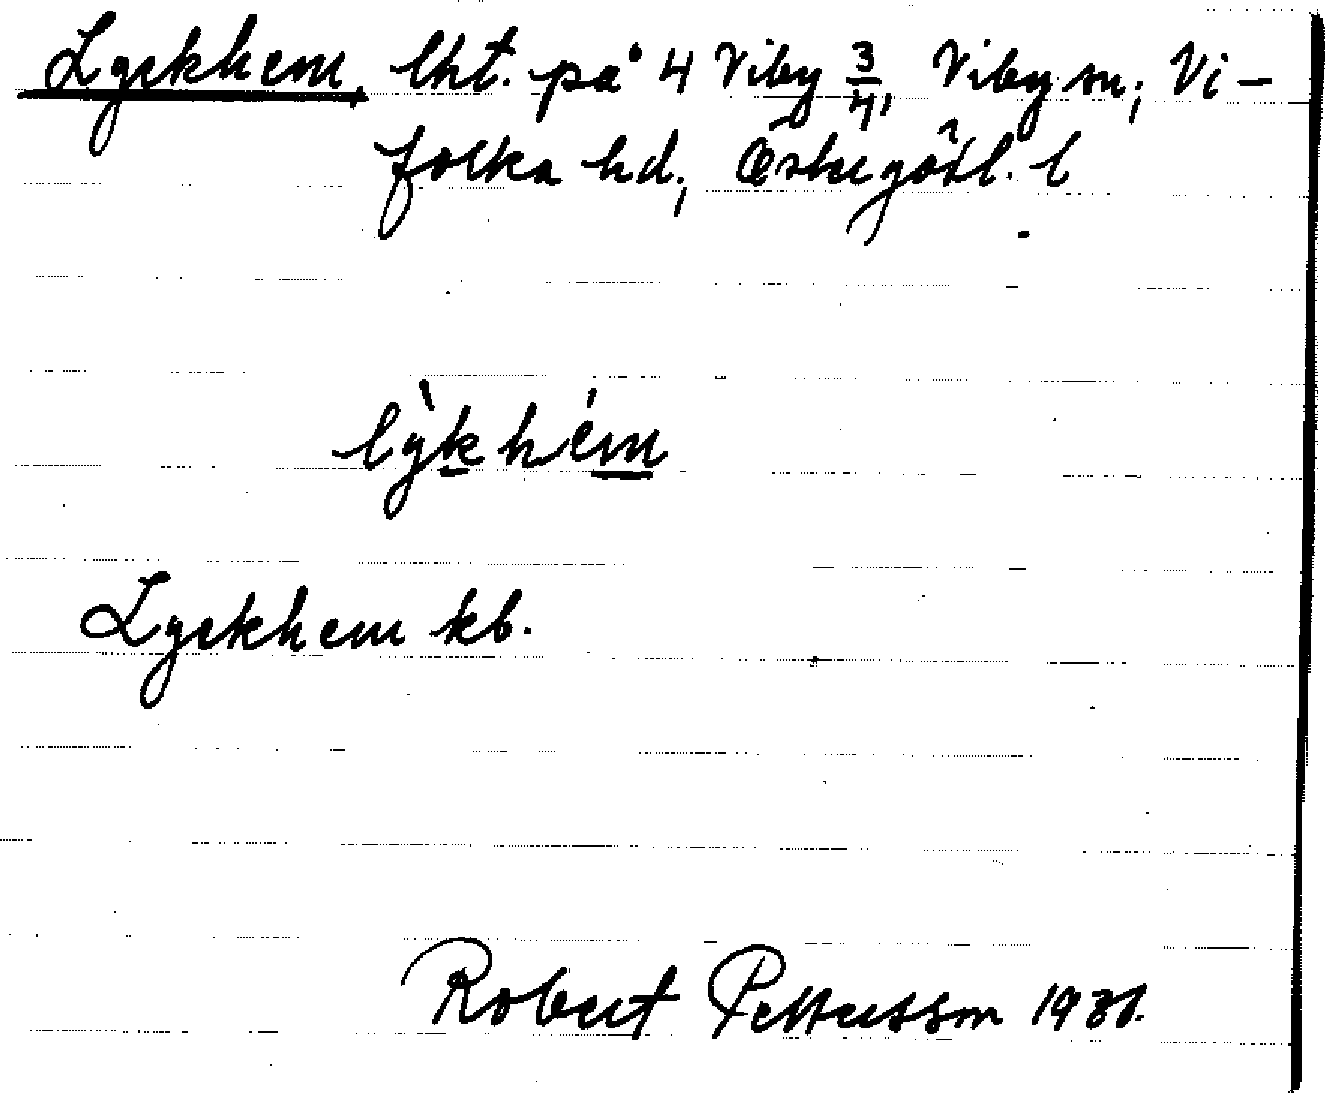 Lyckhem, lht. på 4 Viby 3/4, Viby sn; Vi-
folka hd; Östergötl. l
lỳkhém
Lyckhem kb.
Robert Pettersson